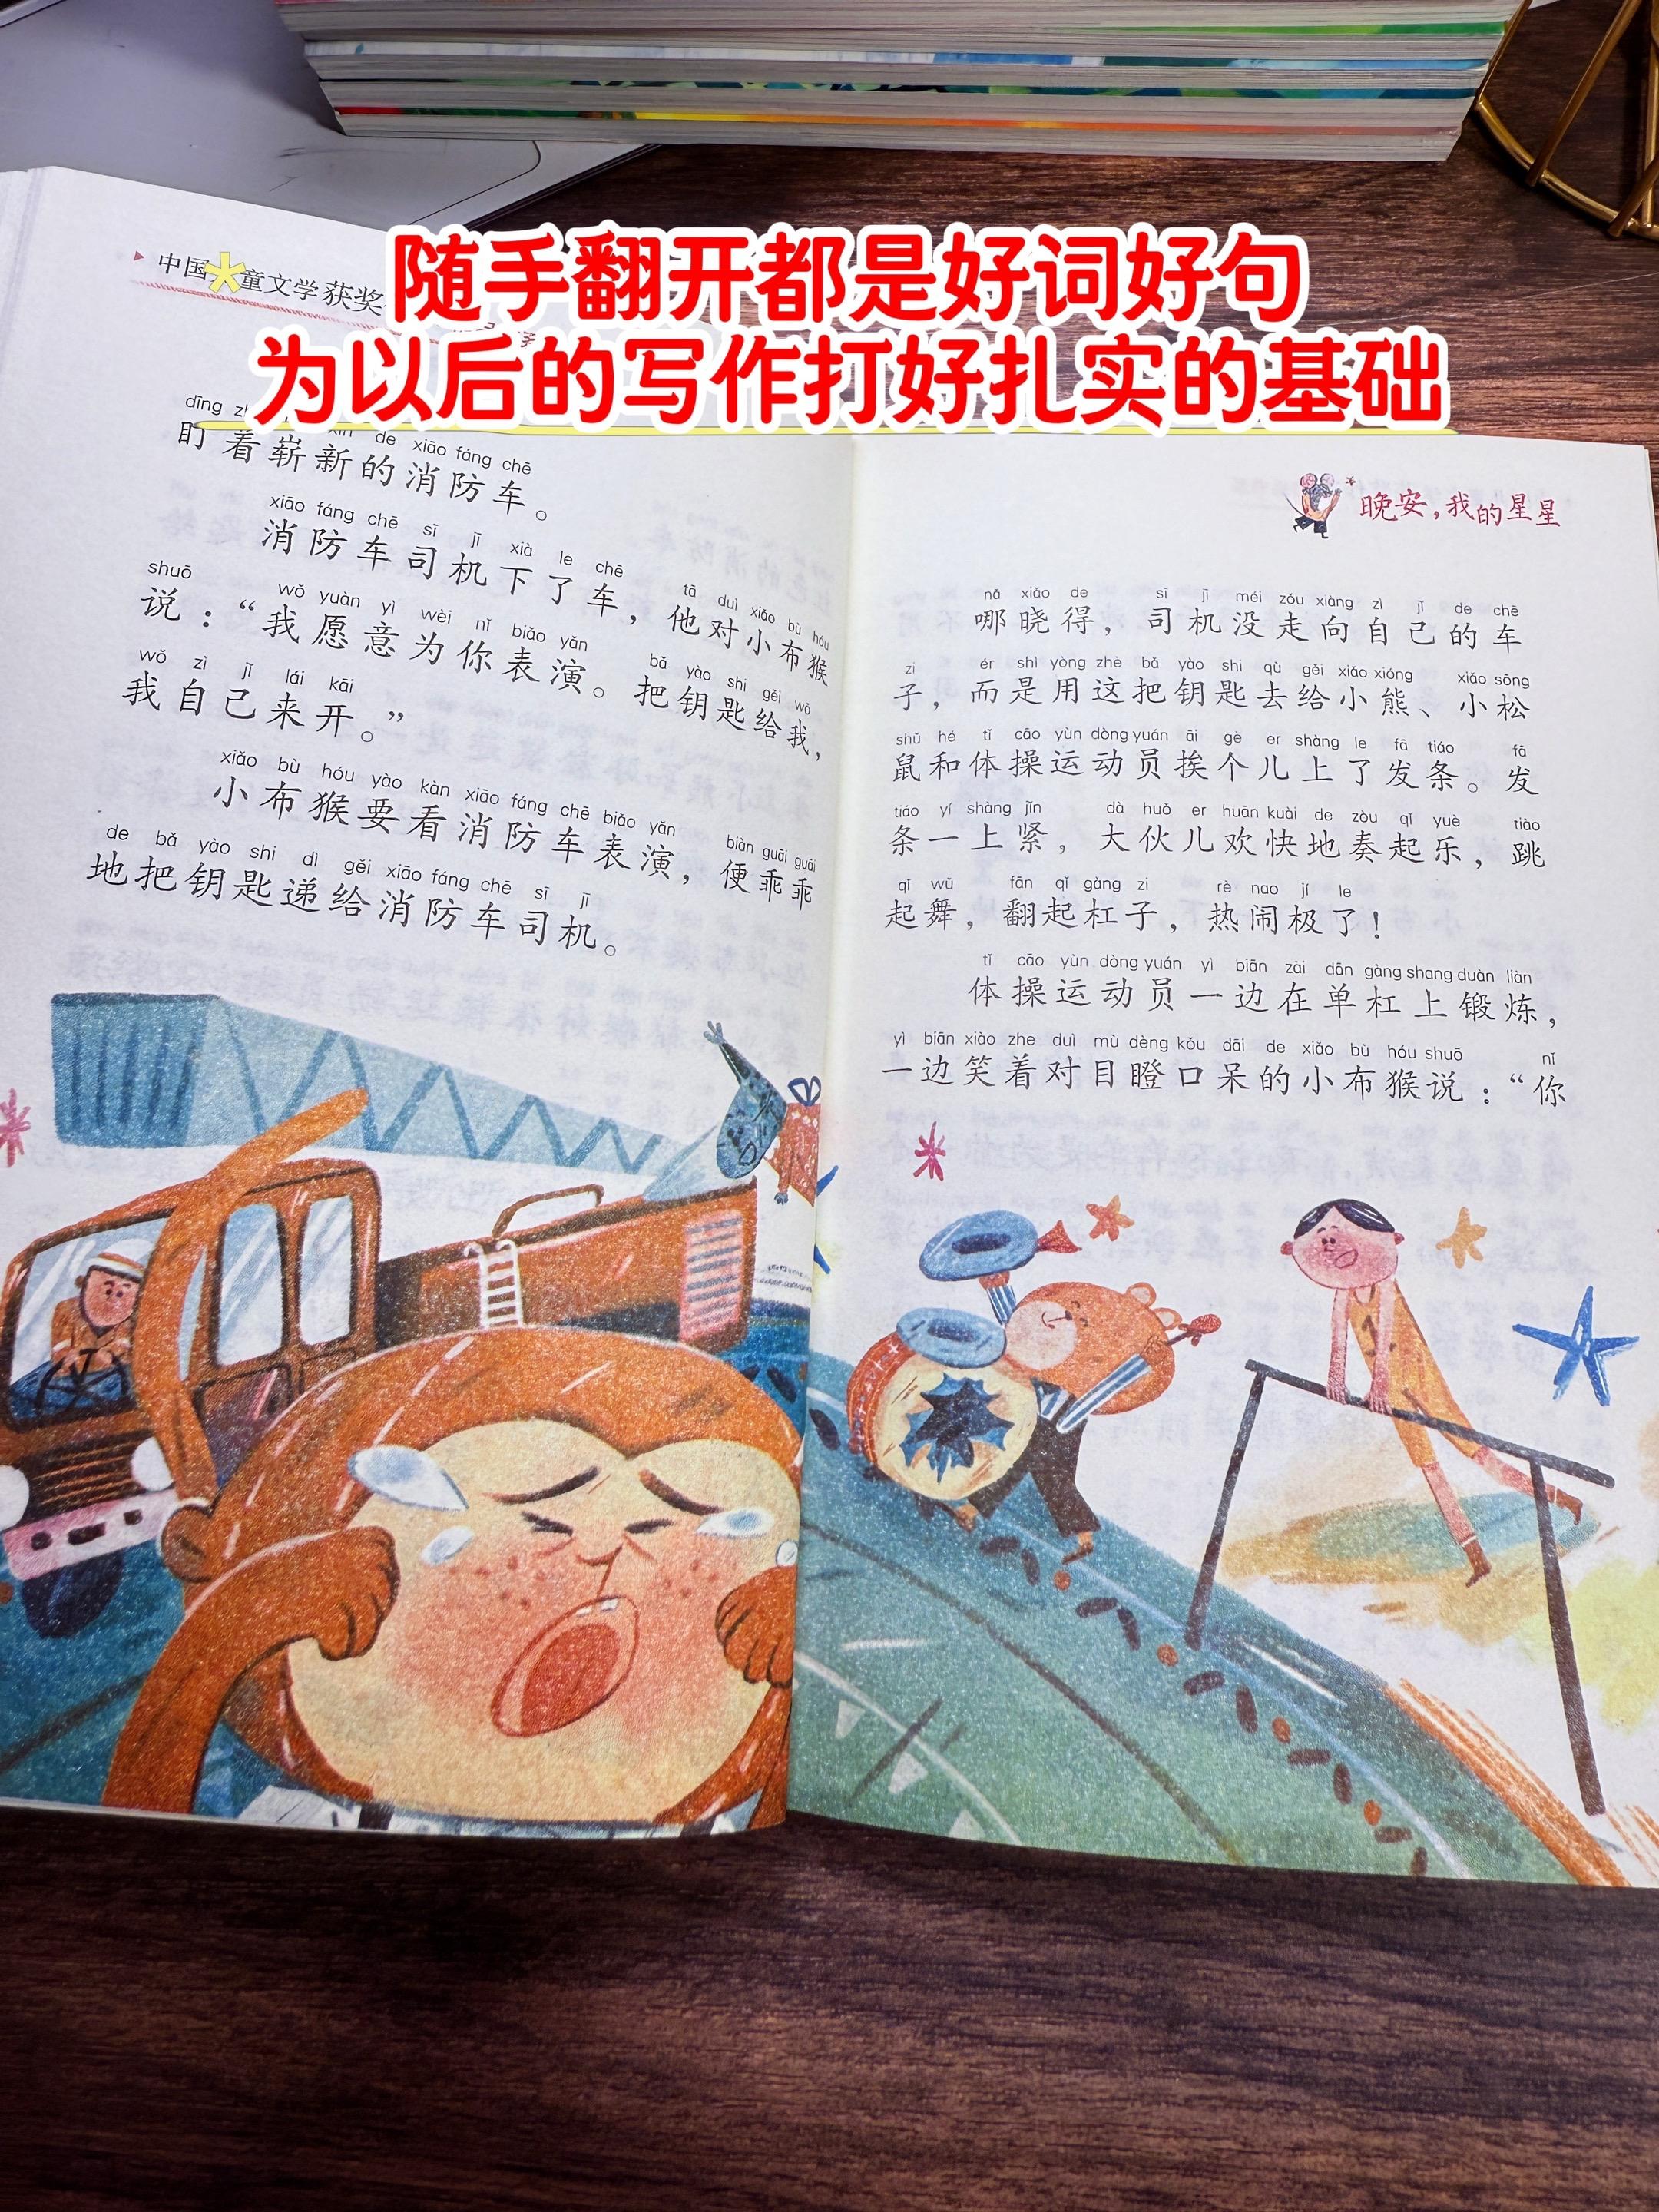 随手翻开都是好词好句
为以后的写作打好扎实的基础
中国
童文学获奖
dīng
xīn de xiāo fáng chē
盯着崭新的消防车。
xiāo fáng chē sī jī xià le chē tā duì xiǎo bù hóu
消防车司机下了车，他对小布猴
shuō wǒ yuàn yì wèi nǐ biǎo yǎn bǎ yào shi gěi wǒ
说：“我愿意为你表演。把钥匙给我，
wǒ zì jǐ lái kāi
我自己来开。”
xiǎo bù hóu yào kàn xiāo fáng chē biǎo yǎn biàn guāi guāi
小布猴要看消防车表演，便乖乖
de bǎ yào shi dì gěi xiāo fáng chē sī jī
地把钥匙递给消防车司机。
晚安，我的星星
nǎ xiǎo de sī jī méi zǒu xiàng zì jǐ de chē
哪晓得，司机没走向自己的车
zi ér shì yòng zhè bǎ yào shi qù gěi xiǎo xióng xiǎo sōng
子，而是用这把钥匙去给小熊、小松
shǔ hé tǐ cāo yùn dòng yuán āi gè er shàng le fā tiáo fā
鼠和体操运动员挨个儿上了发条。发
tiáo yí shàng jǐn dà huǒ er huān kuài de zòu qǐ yuè tiào
条一上紧，大伙儿欢快地奏起乐，跳
qǐ wǔ fān qǐ gàng zi rè nao jí le
起舞，翻起杠子，热闹极了！
tǐ cāo yùn dòng yuán yì biān zài dān gàng shang duàn liàn
体操运动员一边在单杠上锻炼，
yì biān xiào zhe duì mù dèng kǒu dāi de xiǎo bù hóu shuō nǐ
一边笑着对目瞪口呆的小布猴说：“你